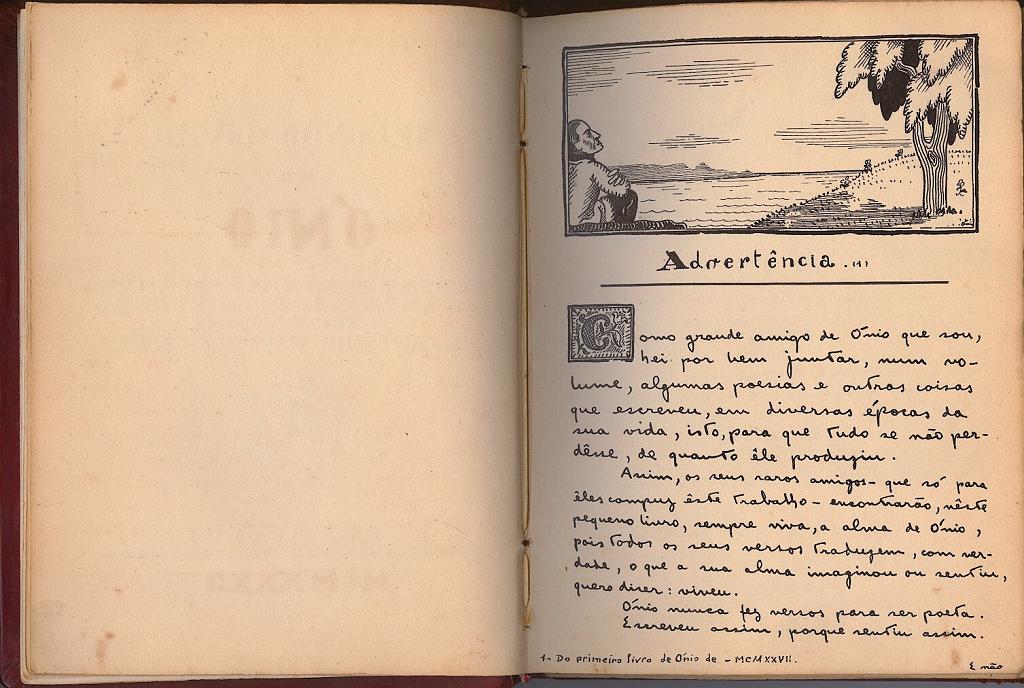 Advertência. (1)
Como grande amigo de Ónio que sou,
hei por bem juntar, num vo-
lume, algumas poesias e outras coisas
que escreveu, em diversas épocas da
sua vida, isto, para que tudo se não per-
dêsse, de quanto êle produziu.
Assim, os seus raros amigos - que só para
êles compuz êste trabalho - encontrarão, nêste
pequeno livro, sempre viva, a alma de Ónio,
pois todos os seus versos traduzem, com ver-
dade, o que a sua alma imaginou ou sentiu,
quero dizer: viveu.
Ónio nunca fez versos para ser poeta.
Escreveu assim, porque sentiu assim.
1 - Do primeiro livro de Ónio de - MCMXXVII.
E não